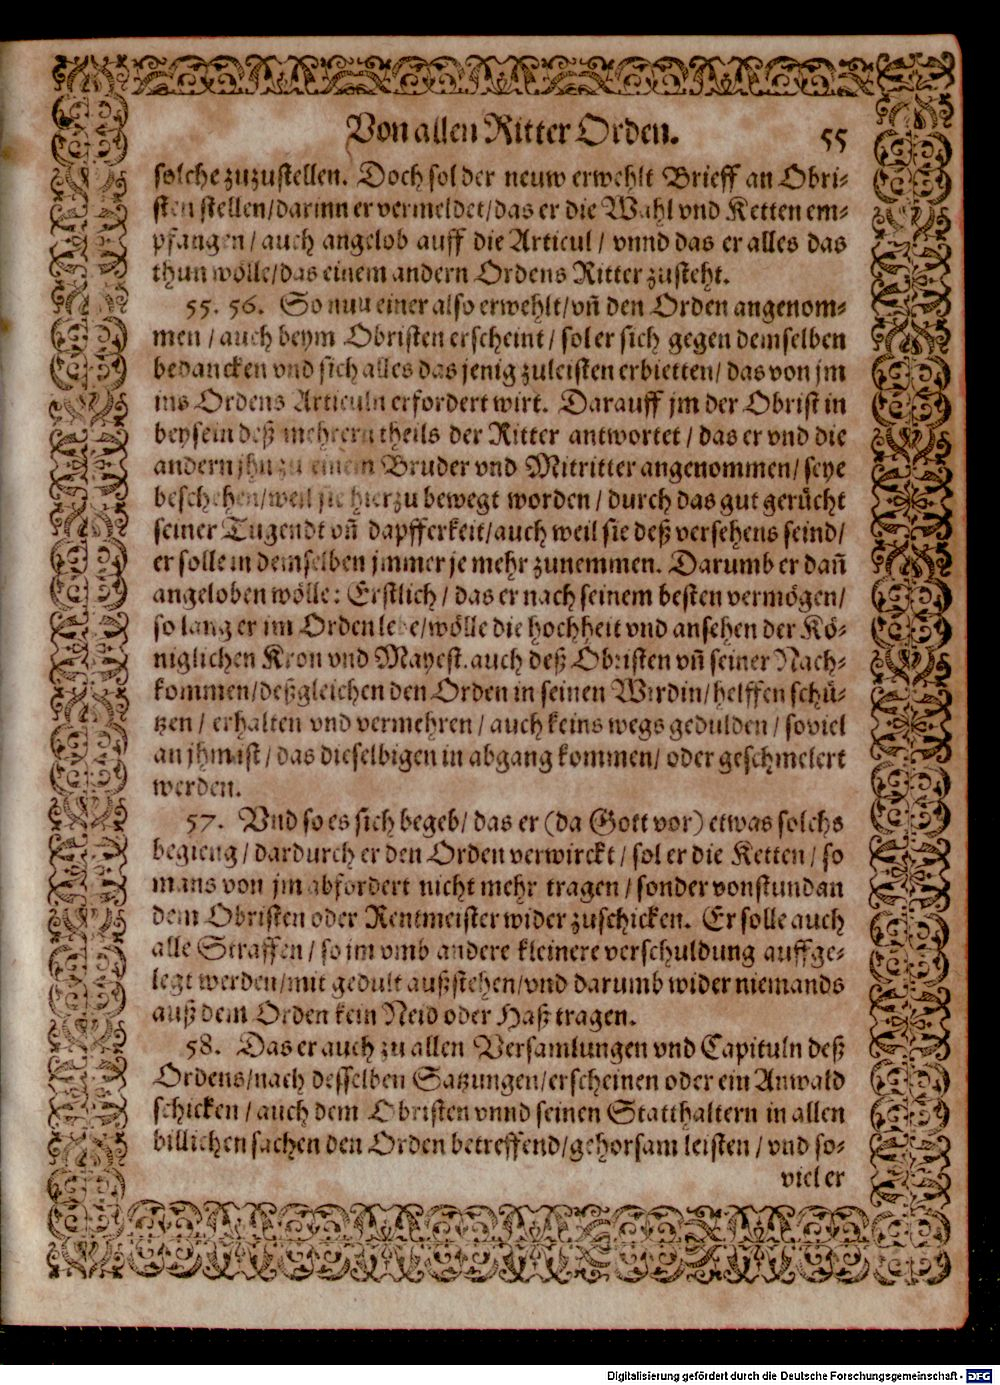 Von allen Ritter Orden. 55
solche zuzustellen. Doch sol der neuw erwehlt Brieff an Obri-
sten stellen/darinn er vermeldet/das er die Wahl vnd Ketten em-
pfangen / auch angelob auff die Articul / vnnd das er alles das
thun wölle/das einem andern Ordens Ritter zusteht.
55. 56. So nuu einer also erwehlt/vn̄ den Orden angenom-
men / auch beym Obristen erscheint / sol er sich gegen demselben
bedancken vnd sich alles das jenig zuleisten erbietten/ das von jm
ins Ordens Articuln erfordert wirt. Darauff jm der Obrist in
beysein deß mehrern theils der Ritter antwortet / das er vnd die
andern jhn zu einem Bruder vnd Mitritter angenommen/ seye
beschehen/weil sie hierzu bewegt worden / durch das gut gerücht
seiner Tugendt vn̄ dapfferkeit/auch weil sie deß versehens seind/
er solle in demselben jmmer je mehr zunemmen. Darumb er dan̄
angeloben wölle: Erstlich / das er nach seinem besten vermögen/
so lang er im Orden lebe/wölle die hochheit vnd ansehen der Kö-
niglichen Kron vnd Mayest. auch deß Obristen vn̄ seiner Nach-
kommen/deßgleichen den Orden in seinen Wirdin/helffen schü-
tzen / erhalten vnd vermehren / auch keins wegs gedulden / soviel
an jhm ist / das dieselbigen in abgang kommen/ oder geschmelert
werden.
57. Vnd so es sich begeb/ das er (da Gott vor) etwas solchs
begieng / dardurch er den Orden verwirckt / sol er die Ketten / so
mans von jm abfordert nicht mehr tragen / sonder vonstund an
dem Obristen oder Rentmeister wider zuschicken. Er solle auch
alle Straffen / so im vmb andere kleinere verschuldung auffge-
legt werden/mit gedult außstehen/vnd darumb wider niemands
auß dem Orden kein Neid oder Haß tragen.
58. Das er auch zu allen Versamlungen vnd Capituln deß
Ordens/nach desselben Satzungen/erscheinen oder ein Anwald
schicken / auch dem Obristen vnnd seinen Statthaltern in allen
billichen sachen den Orden betreffend/gehorsam leisten / vnd so-
viel er
Digitalisierung gefördert durch die Deutsche Forschungsgemeinschaft - DFG